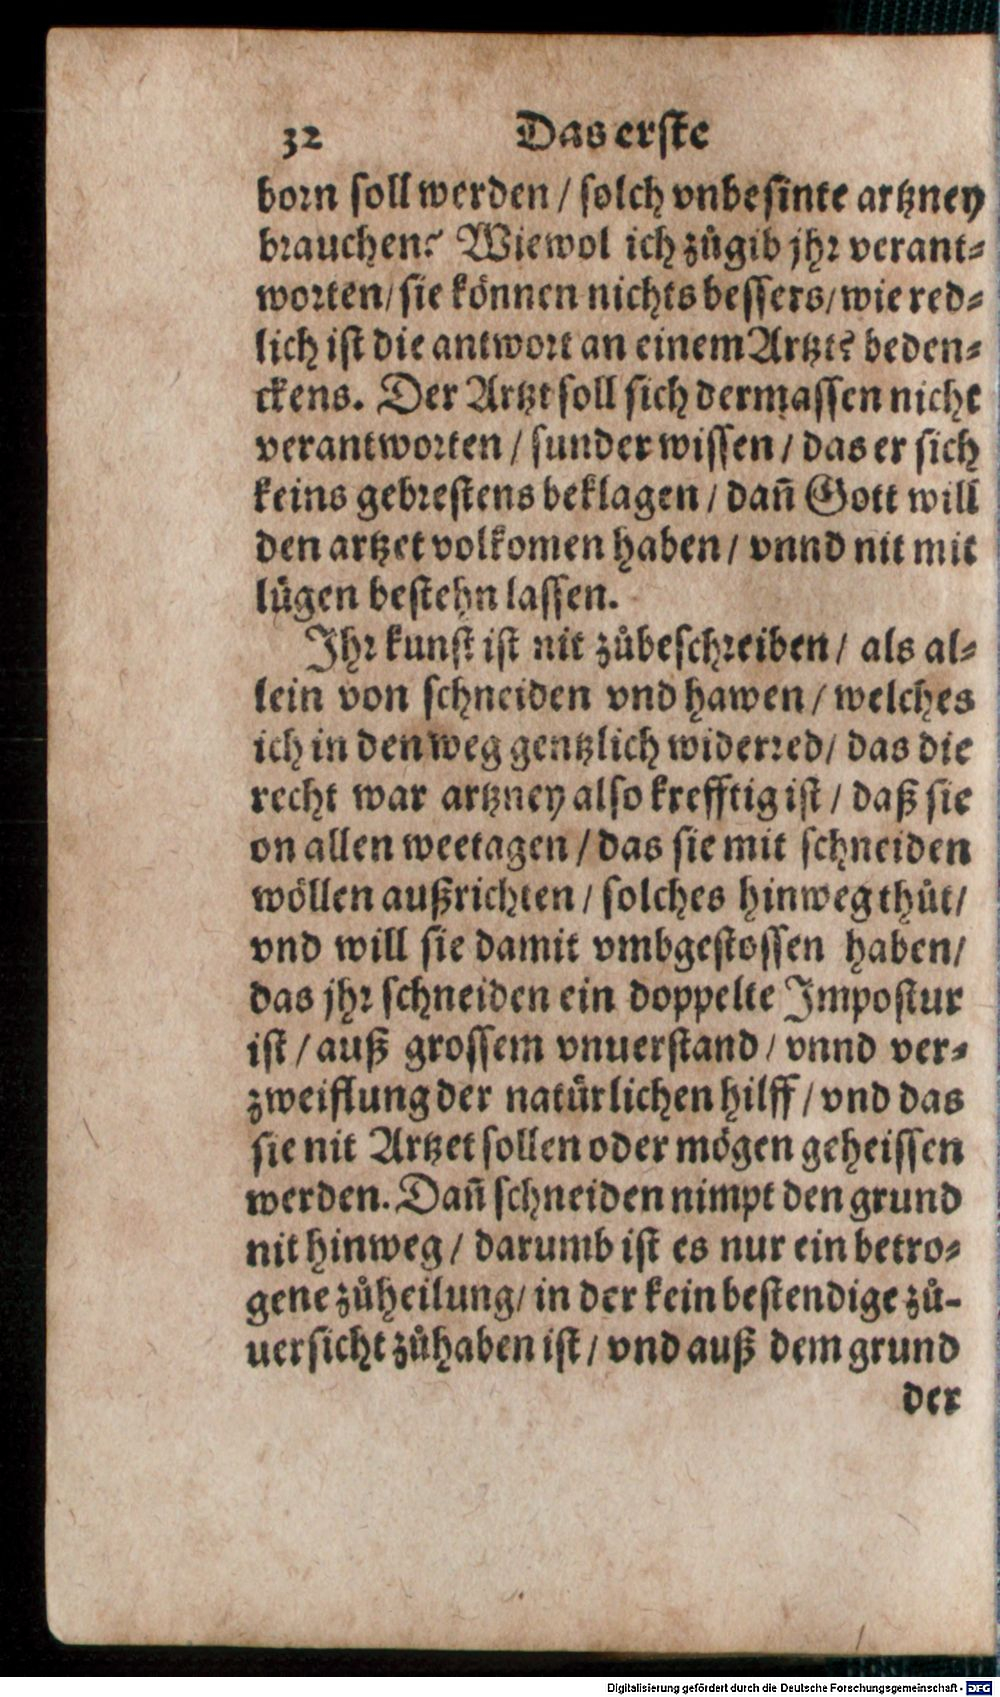 32 Das erste
born soll werden / solch vnbesinte artzney
brauchen? Wiewol ich zůgib jhr verant⸗
worten / sie können nichts bessers / wie red⸗
lich ist die antwort an einem Artzt? beden⸗
ckens. Der Artzt soll sich dermassen nicht
verantworten / sunder wissen / das er sich
keins gebrestens beklagen / dañ Gott will
den artzet volkomen haben / vnnd nit mit
lügen bestehn lassen.
Ihr kunst ist nit zůbeschreiben / als al⸗
lein von schneiden vnd hawen / welches
ich in den weg gentzlich widerred / das die
recht war artzney also krefftig ist / daß sie
on allen weetagen / das sie mit schneiden
wöllen außrichten / solches hinweg thůt /
vnd will sie damit vmbgestossen haben /
das jhr schneiden ein doppelte Impostur
ist / auß grossem vnuerstand / vnnd ver⸗
zweiflung der natürlichen hilff / vnd das
sie nit Artzet sollen oder mögen geheissen
werden. Dañ schneiden nimpt den grund
nit hinweg / darumb ist es nur ein betro⸗
gene zůheilung / in der kein bestendige zů-
uersicht zůhaben ist / vnd auß dem grund
der
Digitalisierung gefördert durch die Deutsche Forschungsgemeinschaft - DFG